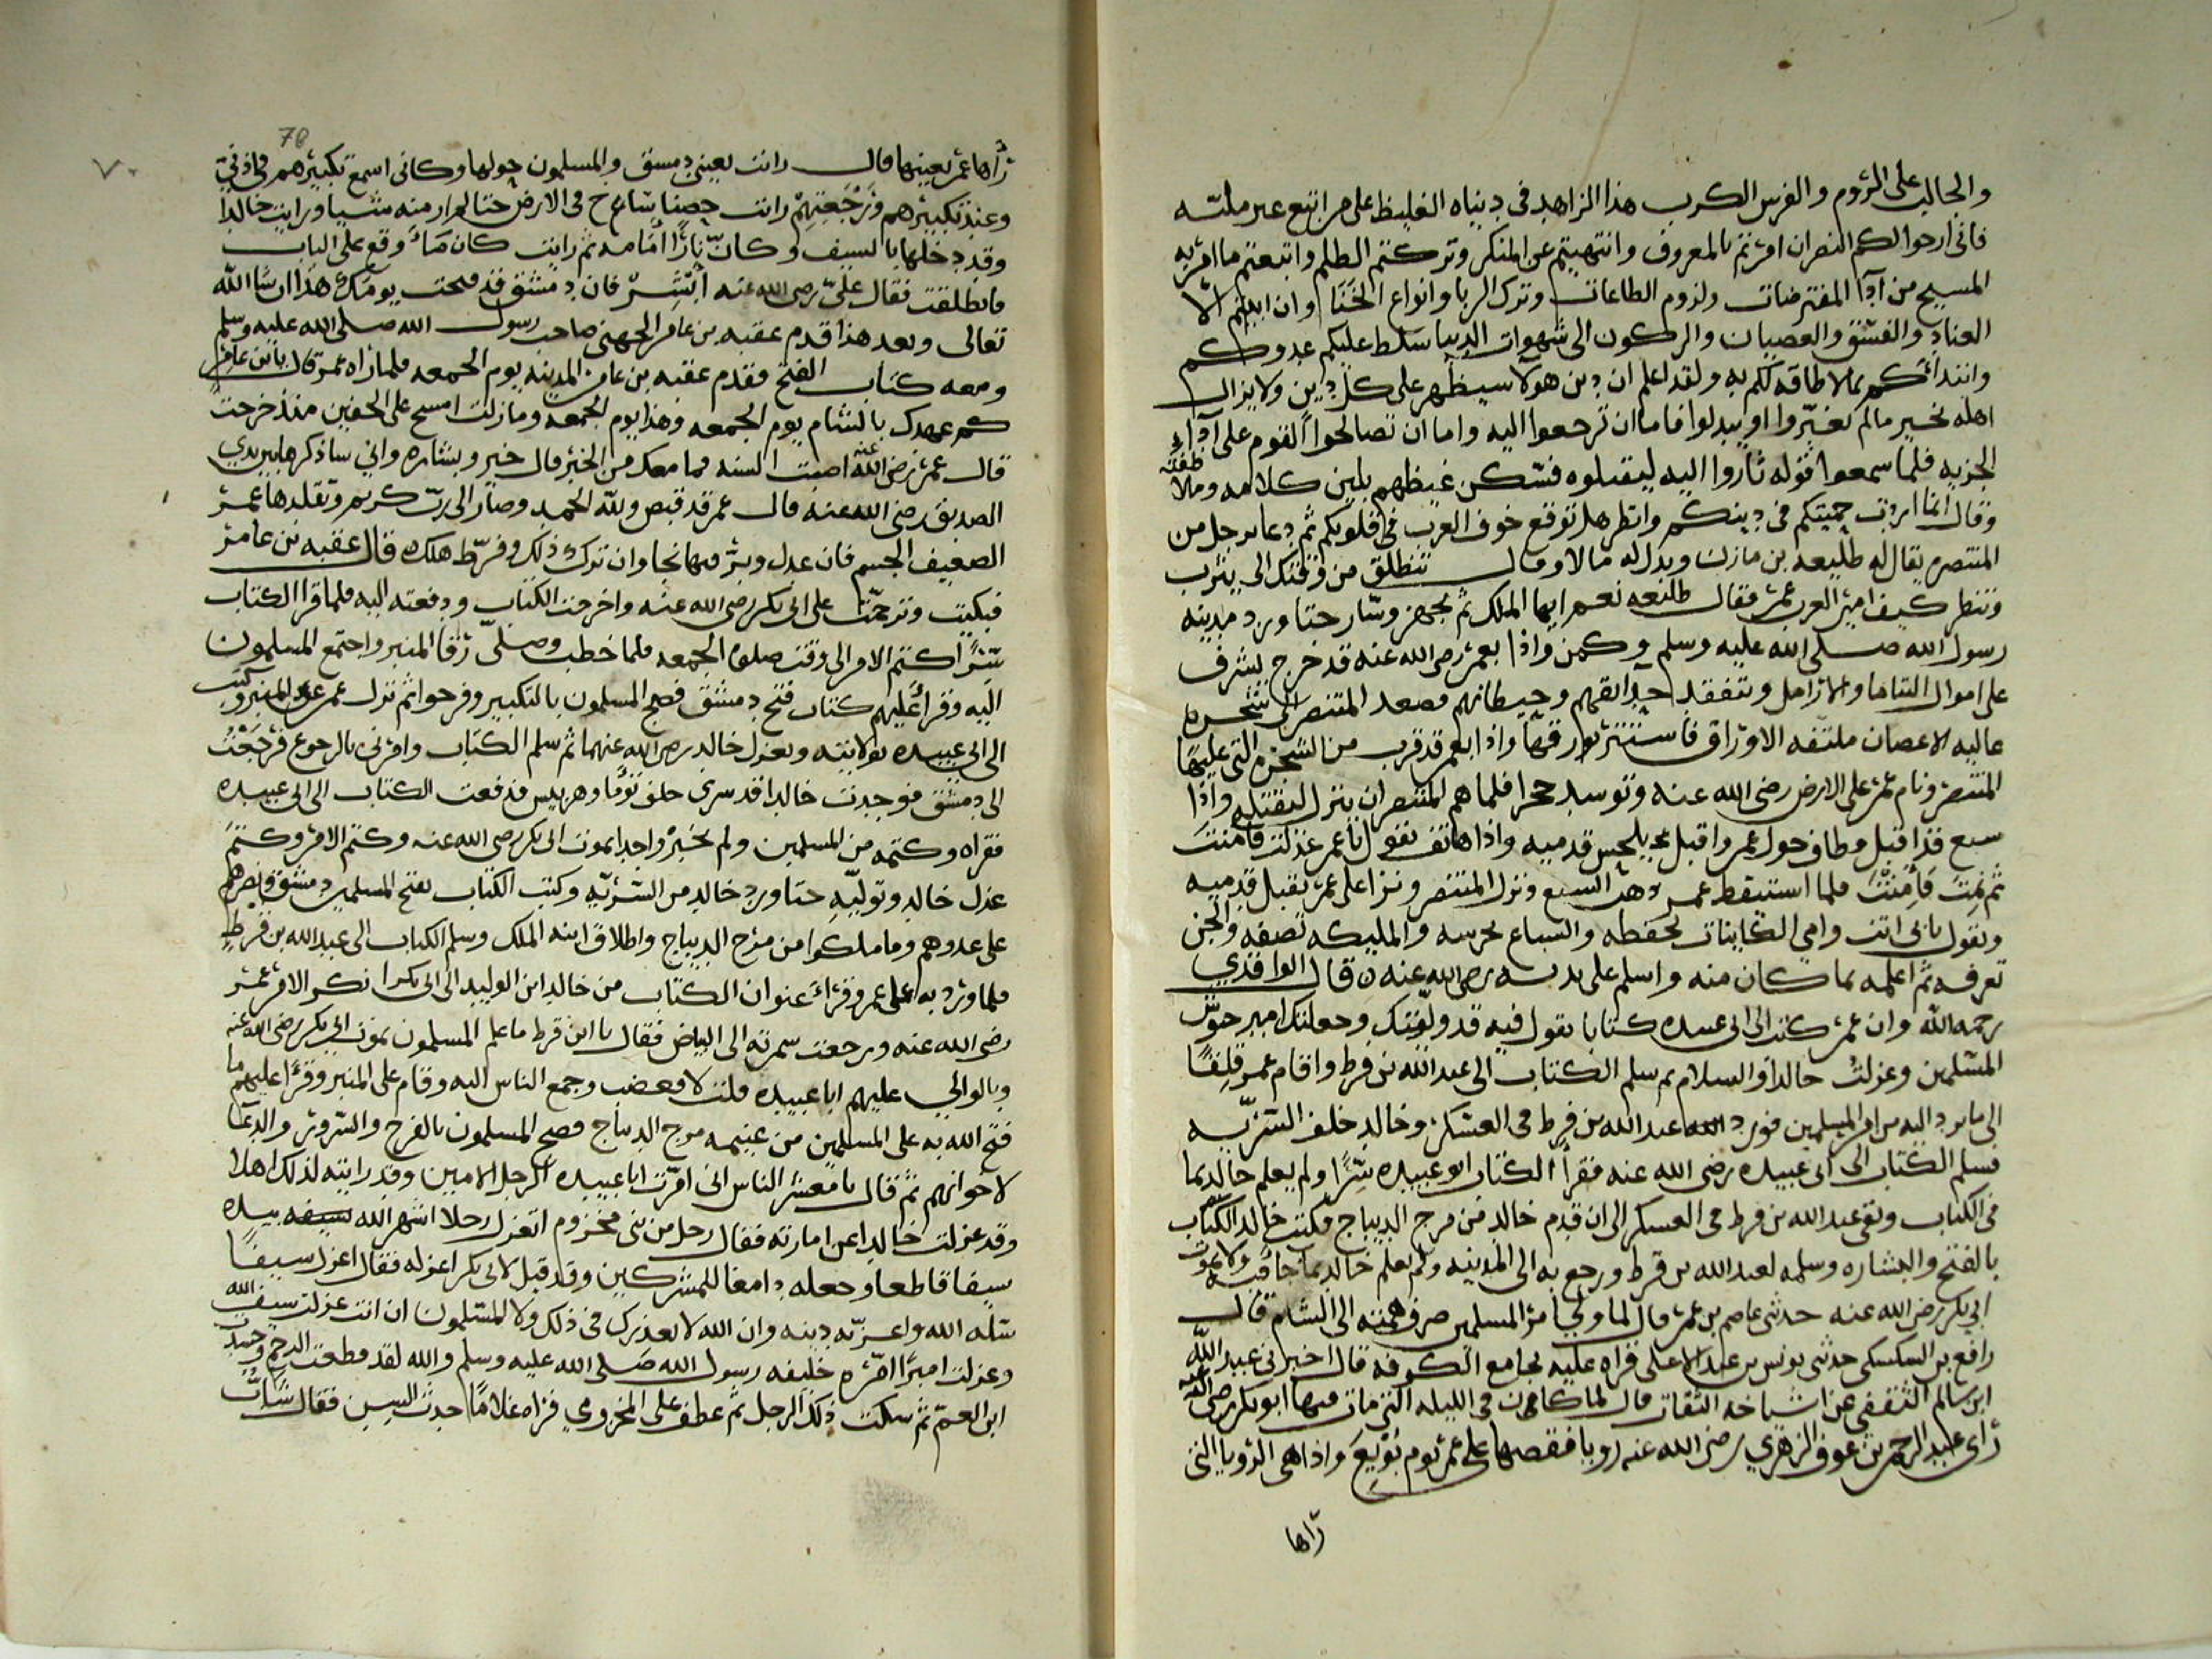 والجالب على الروم والفرس الكرب هذا الزاهد في دنياه الغليظ على من اتبع غير ملته
فاني ارجوا لكم النصر ان امرتم بالمعروف وانتهيتم عن المنكر وتركتم الظلم واتبعتم ما امر به
المسيح من ادآ المفترضات ولزوم الطاعات وترك الربا وانواع الخنا وان ابيتم الا
العناد والفسق والعصيان والركون الى شهوات الدنيا سلط عليكم عدوكم
بما لا طاقه لكم به ولقد اعلم ان دين هولآ سيظهر على كل دين ولا يزال
اهله بخير مالم يغيّروا او يبدلوا فاما ان ترجعوا اليه واما ان تصالحوا القوم على ادآء
الجزيه فلما سمعوا قوله ثاروا اليه ليقتلوه فسكن غيظهم بلين كلامه
وقال انما اردت حميتكم في دينكم وانظر هل توقع خوف العرب في قلوبكم ثم دعا برجل من
المتنصره يقال له طليعه بن مازن وبذل له مالا وقال تنطلق من وقتك الى يثرب
وتنظر كيف امير العرب عمر فقال طليعه نعم ايها الملك ثم تجهز وسار حتا ورد مدينه
رسول الله صلى الله عليه وسلم وكمن واذا بعمر رضى الله عنه قد خرج يشرف
على اموال اليتاما والارامل ويتفقد حدايقهم وحيطانهم فصعد المتنصر الى شجره
عاليه الاغصان ملتفه الاوراق فاستتر بورقها واذا بعمر قد قرب من الشجره التي عليها
المتنصر ونام عمر على الارض رضى الله عنه وتوسد حجرا فلما هم المتنصر ان ينزل ليقتله واذا
سبع قد اقبل وطاف حول عمر واقبل يلحس قدميه واذا هاتف يقول يا عمر عدلت فامنت
ثم نمت فأمنت فلما استيقظ عمر ذهب السبع ونزل المتنصر ونزا على عمر يقبل قدميه
ويقول بابي انت وامي الكاينات تحفظه والسباع تحرسه والمليكه تصفه والجن
تعرفه ثم اعلمه بما كان منه واسلم على يديه رضى الله عنه ٥ قال الواقدي
رحمه الله وان عمر كتب الى ابى عبيده كتابا يقول فيه قد وليتك وجعلتك امير جيوش
المسلمين وعزلت خالدا والسلام ثم سلم الكتاب الى عبد الله بن قرط واقام عمر قلقًا
الى ما يرد اليه من امر المسلمين فورد عبد الله بن قرط في العسكر وخالد خلف السريه
فسلم الكتاب الى ابى عبيده رضى الله عنه فقرأ الكتاب ابو عبيده سِرًّا ولم يعلم خالد بما
في الكتاب وبقى عبد الله بن قرط في العسكر الى ان قدم خالد من مرج الديباج فكتب خالد الكتاب
بالفتح والبشاره وسلمه لعبد الله بن قرط ورجع به الى المدينه ولم يعلم خالد بما جا فيه ولا بموت
ابى بكر رضى الله عنه حدثنى عاصم بن عمر قال لما ولي امر المسلمين صرف همته الى الشام قال
رافع بن السكسكى حدثنى يونس بن عبد الاعلى قراه عليه بجامع الكوفه قال اخبرنى عبد الله
ابن سالم الثقفى عن اشياخه الثقات قال لما كان فى الليله التي مات فيها ابو بكر رضى الله عنه
رآى عبد الرحمن بن عوف الزهري رضى الله عنه رويا فقصها على عمر يوم بويع واذا هى الرويا التى
رآها
78
رآها عمر بعينها قال رايت يعينى دمشق والمسلمون حولها وكانى اسمع تكبيرهم في اذنيّ
وعند تكبيرهم وزحفتهم رايت حصنا ساخ في الارض حتا لم ار منه شيا ورايت خالدا
وقد دخلها بالسيف وكأن نارًا امامه ثم رايت كان مآء وقع على النار
فانطفت فقال علىّ رضى الله عنه ابشر فان دمشق قد فتحت يومك هذا ان شا الله
تعالى وبعد هذا قدم عقبه بن عامر الجهنى صاحب رسول الله صلى الله عليه وسلم
ومعه كتاب الفتح فقدم عقبه بن عامر المدينه يوم الجمعه فلما رآه عمر قال يا ابن عامر
كم عهدك بالشام يوم الجمعه وهذا يوم الجمعه وما زلت امسح على الخفين منذ خرجت
قال عمر رضى الله عنه اصبت السنه فما معك من الخبر قال خير وبشاره واني ساذكرها بين يدي
الصديق رضى الله عنه قال عمر قد قبض ولله الحمد وصار الى ربّ كريم وتقلدها عمر
الضعيف الجسم فان عدل وبر فيها نجا وان ترك ذلك وفرّط هلك قال عقبه بن عامر
فبكيت وترحمت على ابى بكر رضى الله عنه واخرجت الكتاب ودفعته اليه فلما قرا الكتاب
سرًّا كتم الامر الى وقت صلوة الجمعه فلما خطب وصلّى رقا المنبر واجتمع المسلمون
اليه وقرأ عليهم كتاب فتح دمشق فضج المسلمون بالتكبير وفرحوا ثم نزل عمر عن المنبر وكتب
الى ابى عبيده بولايته وبعزل خالد رضى الله عنهما ثم سلم الكتاب وامرنى بالرجوع فرجعت
الى دمشق فوجدت خالدا قد سري خلف توما وهربيس فدفعت الكتاب الى ابى عبيده
فقراه وكتمه من المسلمين ولم يخبر واحدا بموت ابى بكر رضى الله عنه وكتم الامر وكتم
عزل خالد وتوليّه حتا ورد خالد من السريّه وكتب الكتاب بفتح المسلمين دمشق ونصرهم
على عدوهم وما ملكوا من مرج الديباج واطلاق ابنه الملك وسلم الكتاب الى عبد الله بن قرط
فلما ورد به على عمر وقرأ عنوان الكتاب من خالد ابن الوليد الى ابى بكر انكر الامر عمر
رضى الله عنه ورجعت سمرته الى البياض فقال يا ابن قرط ما علم المسلمون بموت ابى بكر رضى الله عنه
وبالوالي عليهم ابا عبيده قلت لا فغضب وجمع الناس اليه وقام على المنبر وقرأ عليهم ما
فتح الله به على المسلمين من غنيمه مرج الديباج فضج المسلمون بالفرح والسرور والدعا
لاخوانهم ثم قال يا معشر الناس انى امرت ابا عبيده الرجل الامين وقد رايته لذلك اهلا
وقد عزلت خالدا عن امارته فقال رجل من بنى مخزوم اتعزل رجلا اشهر الله بيده
سيفا قاطعا وجعله دامغا للمشركين وقد قيل لابى بكر اعزله فقال اعزل سيفًا
سلّه الله واعز به دينه وان الله لا يعذرك في ذلك ولا المسلمون ان انت عزلت سيف الله
وعزلت اميرًا امّره خليفه رسول الله صلى الله عليه وسلم والله لقد قطعت الرحم وحسدت
ابن العم ثم سكت ذلك الرجل ثم عطف على المخزومي فراه غلامًا حدث السن فقال شابّ